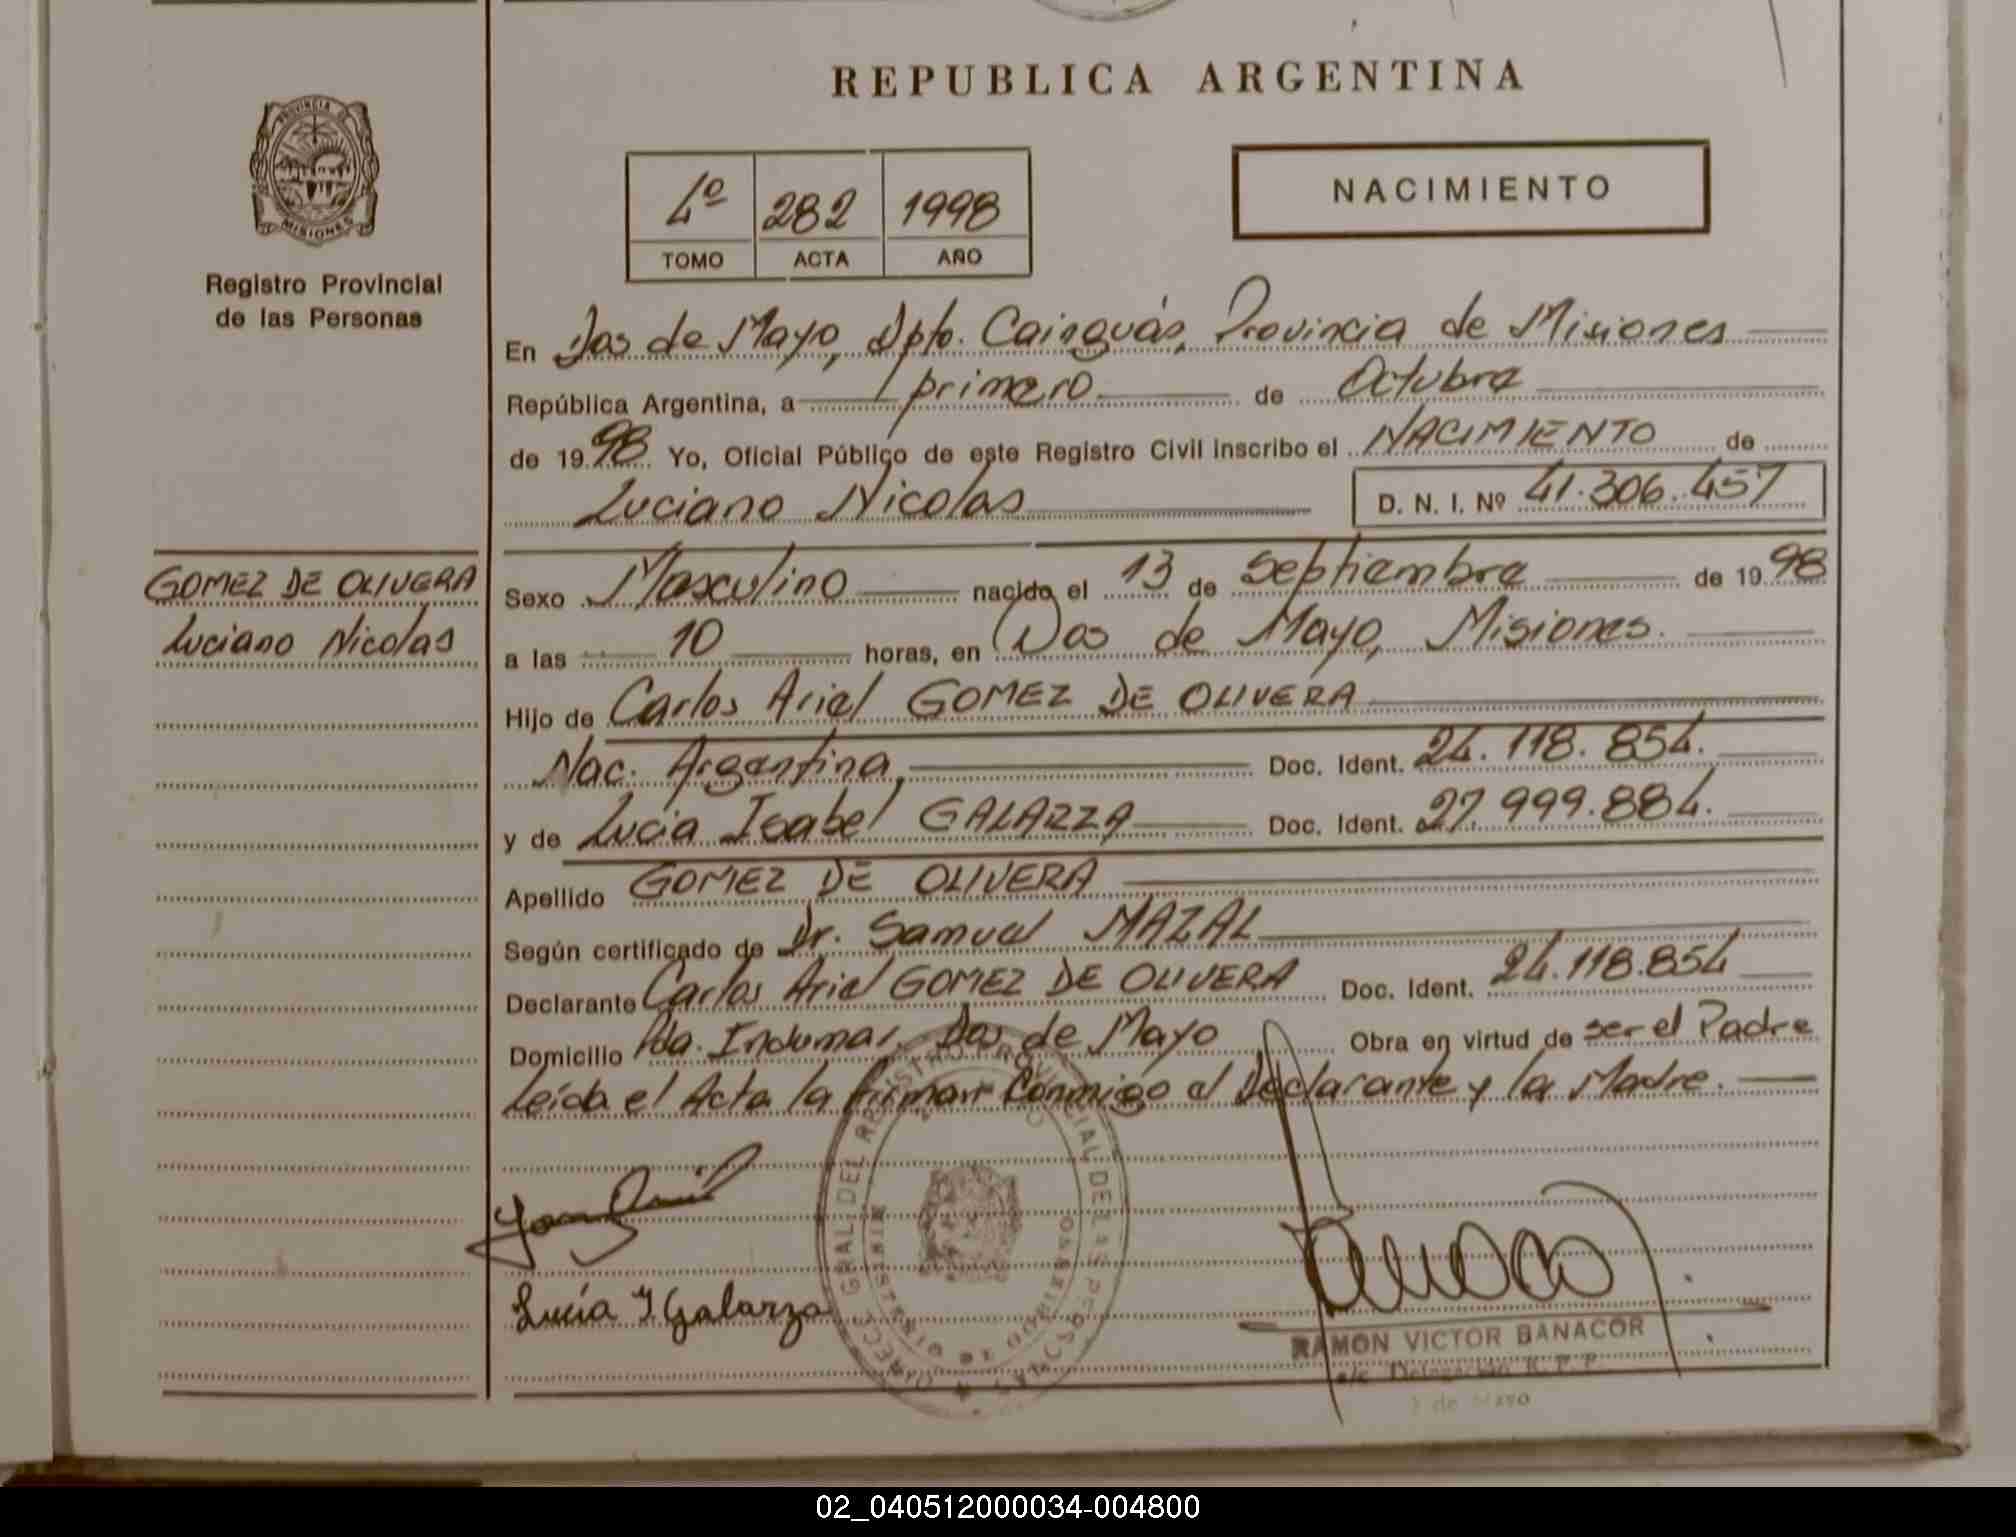 REPUBLICA ARGENTINA
PROVINCIA DE
MISIONES
Registro Provincial
de las Personas
4º 282 1998
TOMO ACTA AÑO
NACIMIENTO
En Dos de Mayo, Dpto. Cainguás, Provincia de Misiones
República Argentina, a primero de Octubre
de 1998 Yo, Oficial Público de este Registro Civil inscribo el NACIMIENTO de
Luciano Nicolas D. N. I. Nº 41.306.457
GOMEZ DE OLIVERA
Luciano Nicolas
Sexo Masculino nacido el 13 de Septiembre de 1998
a las 10 horas, en Dos de Mayo, Misiones.
Hijo de Carlos Ariel GOMEZ DE OLIVERA
Nac. Argentina, Doc. Ident. 24.118.854.
y de Lucia Isabel GALARZA Doc. Ident. 27.999.884.
Apellido GOMEZ DE OLIVERA
Según certificado de Dr. Samuel MAZAL
Declarante Carlos Ariel GOMEZ DE OLIVERA Doc. Ident. 24.118.854
Domicilio Pda. Indumar, Dos de Mayo Obra en virtud de ser el Padre
Leída el Acta la firman Conmigo el Declarante y la Madre.
DIRECC. GRAL. DEL REGISTRO PROVINCIAL DE LAS PERSONAS
MINISTERIO DE GOBIERNO
Lucía I Galarza
RAMON VICTOR BANACOR
a/c Delegación R. P. P.
2 de Mayo
02_040512000034-004800